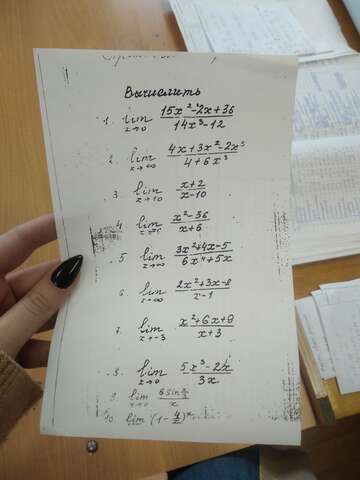 Вычислить
1. lim x→0 (15x² - 2x + 36)/(14x³ - 12)
2. lim x→∞ (4x + 3x² - 2x³)/(4 + 6x³)
3. lim x→10 (x + 2)/(x - 10)
4 lim (x² - 36)/(x + 6)
5 lim x→∞ (3x² + 4x - 5)/(6x⁴ + 5x)
6. lim x→∞ (2x² + 3x - 8)/(x - 1)
7. lim x→-3 (x² + 6x + 9)/(x + 3)
8. lim x→0 (5x³ - 2x)/(3x)
9. lim x→0
10. lim (1 - 4/x)ˣ